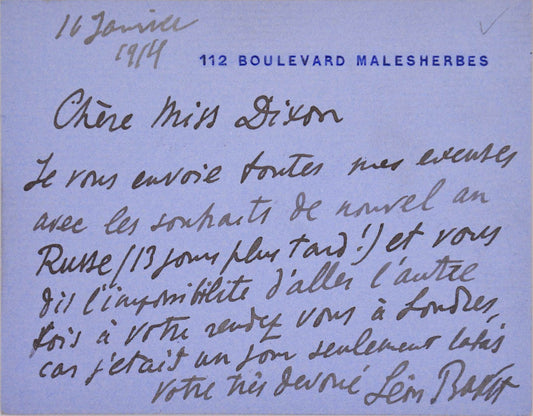 16 Janvier
1914
112 BOULEVARD MALESHERBES
Chère Miss Dixon
Je vous envoie toutes mes excuses
avec les souhaits de nouvel an
Russe (13 jours plus tard!) et vous
dis l'impossibilite d'aller l'autre
fois à votre rendez vous à Londres,
car j'etait un jour seulement
votre très devoué Léon Bakst